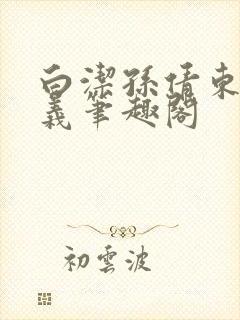 白潔孫倩東
義筆趣閣
初雲波